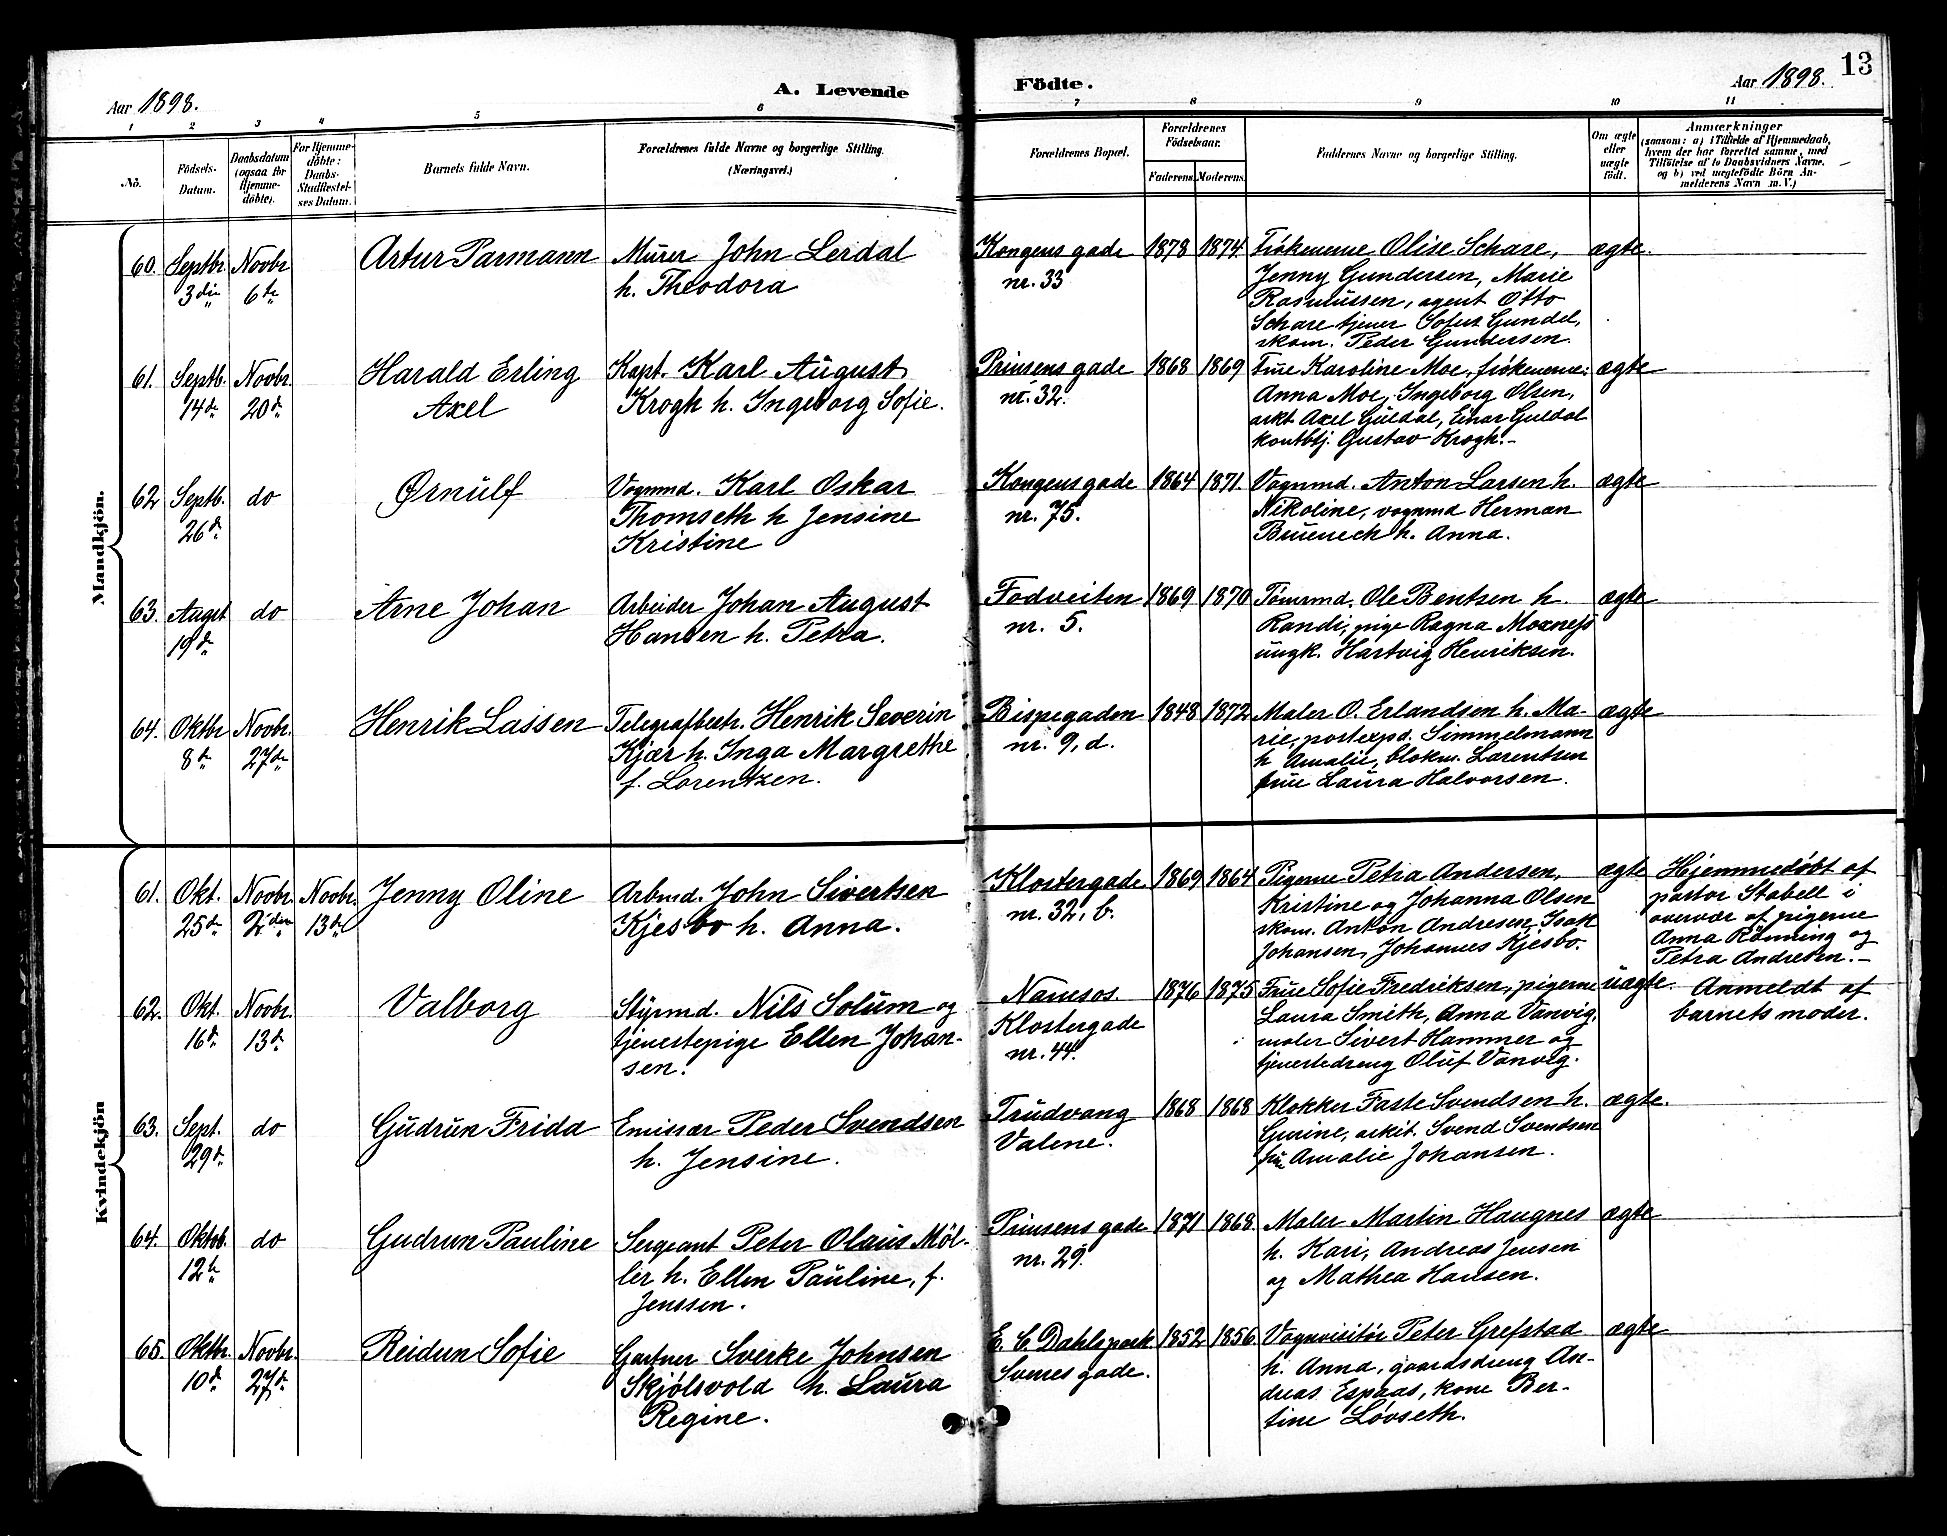 Aar 1898.
A. Levende
Födte.
Aar 1898.
13
1 2 3 4 5 6 7 8 9 10 11
No.
Födsels-
Datum.
Daabsdatum
(ogsaa for
Hjemme-
döbte).
For Hjemme-
döbte:
Daabs-
Stadfæstel-
ses Datum.
Barnets fulde Navn.
Forældrenes fulde Navne og borgerlige Stilling.
(Næringsvei.)
Forældrenes Bopæl.
Forældrenes
Födselsaar.
Faderens. Moderens.
Faddernes Navne og borgerlige Stilling.
Om ægte
eller
uægte
födt.
Anmærkninger
(saasom: a) i Tilfælde af Hjemmedaab,
hvem der har forrettet samme, med
Tilföielse af to Daabsvidners Navne,
og b) ved uægtefödte Börn An-
melderens Navn m. V.)
Mandkjön.
60. Septbr. 3die
Novbr 6te
Artur Parmann
Murer John Lerdal
h. Theodora
Kongens gade
nr. 33
1878 1874
Frökenerne Olise Schare,
Jenny Gundersen, Marie
Rasmussen, agent Otto
Schare tjener Sofus Gundel,
skom. Peder Gundersen.
ægte.
61. Septb. 14de
Novbr 20de
Harald Erling
Axel
Kapt. Karl August
Krogh h. Ingeborg Sofie.
Prinsens gade
nr. 32.
1868 1869
Frue Karoline Moe, frökenerne:
Anna Moe, Ingeborg Olsen,
arkt Axel Guldal, Einar Guldal
kontbtj. Gustav Krogh.-
ægte
62 Septb. 26de
do
Ørnulf
Vognmd. Karl Oskar
Thomseth h Jensine
Kristine
Kongensgade
nr. 75.
1864 1871.
Vognmd. Anton Larsen h.
Nikoline, vognmd Herman
Bruenech h. Anna.
ægte
63. Augst 19de
do
Arne Johan
Arbeider Johan August
Hansen h. Petra.
Fodveiten
nr. 5.
1869 1870
Tömrmd. Ole Bentsen h.
Randi, pige Ragna Moxness
ungk. Hartvig Henriksen.
ægte
64. Oktbr 8de
Novbr. 27de
Henrik Lassen
Telegrafbest. Henrik Severin
Kjær h. Inga Margrethe
f. Lorentzen.
Bispegaden
nr. 9, d.
1848 1872
Maler O. Erlandsen h. Ma-
rie, postexpd. Simmelmann
h Amalie, blokm. Larentsen
frue Laura Halvorsen.
ægte
Kvindekjön
61. Okt. 25de
Novbr. 2den
Novbr. 13de
Jenny Oline
Arbmd. John Sivertsen
Kjesbo h. Anna.
Klostergade
nr. 32, b.
1869 1864
Pigerne Petra Andersen,
Kristine og Johanna Olsen
skom. Anton Andresen, Isak
Johansen, Johannes Kjesbo.
ægte
Hjemmedöbt af
pastor Stabell i
overvær af pigerne
Anna Rönning og
Petra Andresen.-
62. Okt. 16de
Novbr. 13de
Valborg
Styrmd. Nils Solum og
tjenestepige Ellen Johan-
sen.
Namsos
Klostergade
nr. 44.
1876 1875
Frue Sofie Fredriksen, pigerne
Laura Smith, Anna Vanvig,
maler Sivert Hammer og
tjenestedreng Oluf Vanvig.
uægte.
Anmeldt af
barnets moder.
63. Sept. 29de
do
Gudrun Frida
Emissær Peder Svendsen
h. Jensine.
Trudvang
Valene.
1868 1868
Klokker Faste Svendsen h.
Gurine, arkit. Svend Svendsen
frue Amalie Johansen.
ægte.
64. Oktob. 12te
do
Gudrun Pauline
Sergeant Peter Olaus Möl-
ler h. Ellen Pauline, f.
Jenssen.
Prinsens gade
nr. 29.
1871 1868.
Maler Martin Haugnes
h. Kari, Andreas Jensen
og Mathea Hansen.
ægte
65. Oktbr. 10de
Novbr. 27de
Reidun Sofie
Gartner Sverke Johnsen
Skjölsvold h. Laura
Regine.
E. C. Dahls park
Sverres gade.
1852 1856.
Vognvisitör Peter Grefstad
h. Anna, gaardsdreng An-
dreas Espaas, kone Ber-
tine Lövseth.
ægte